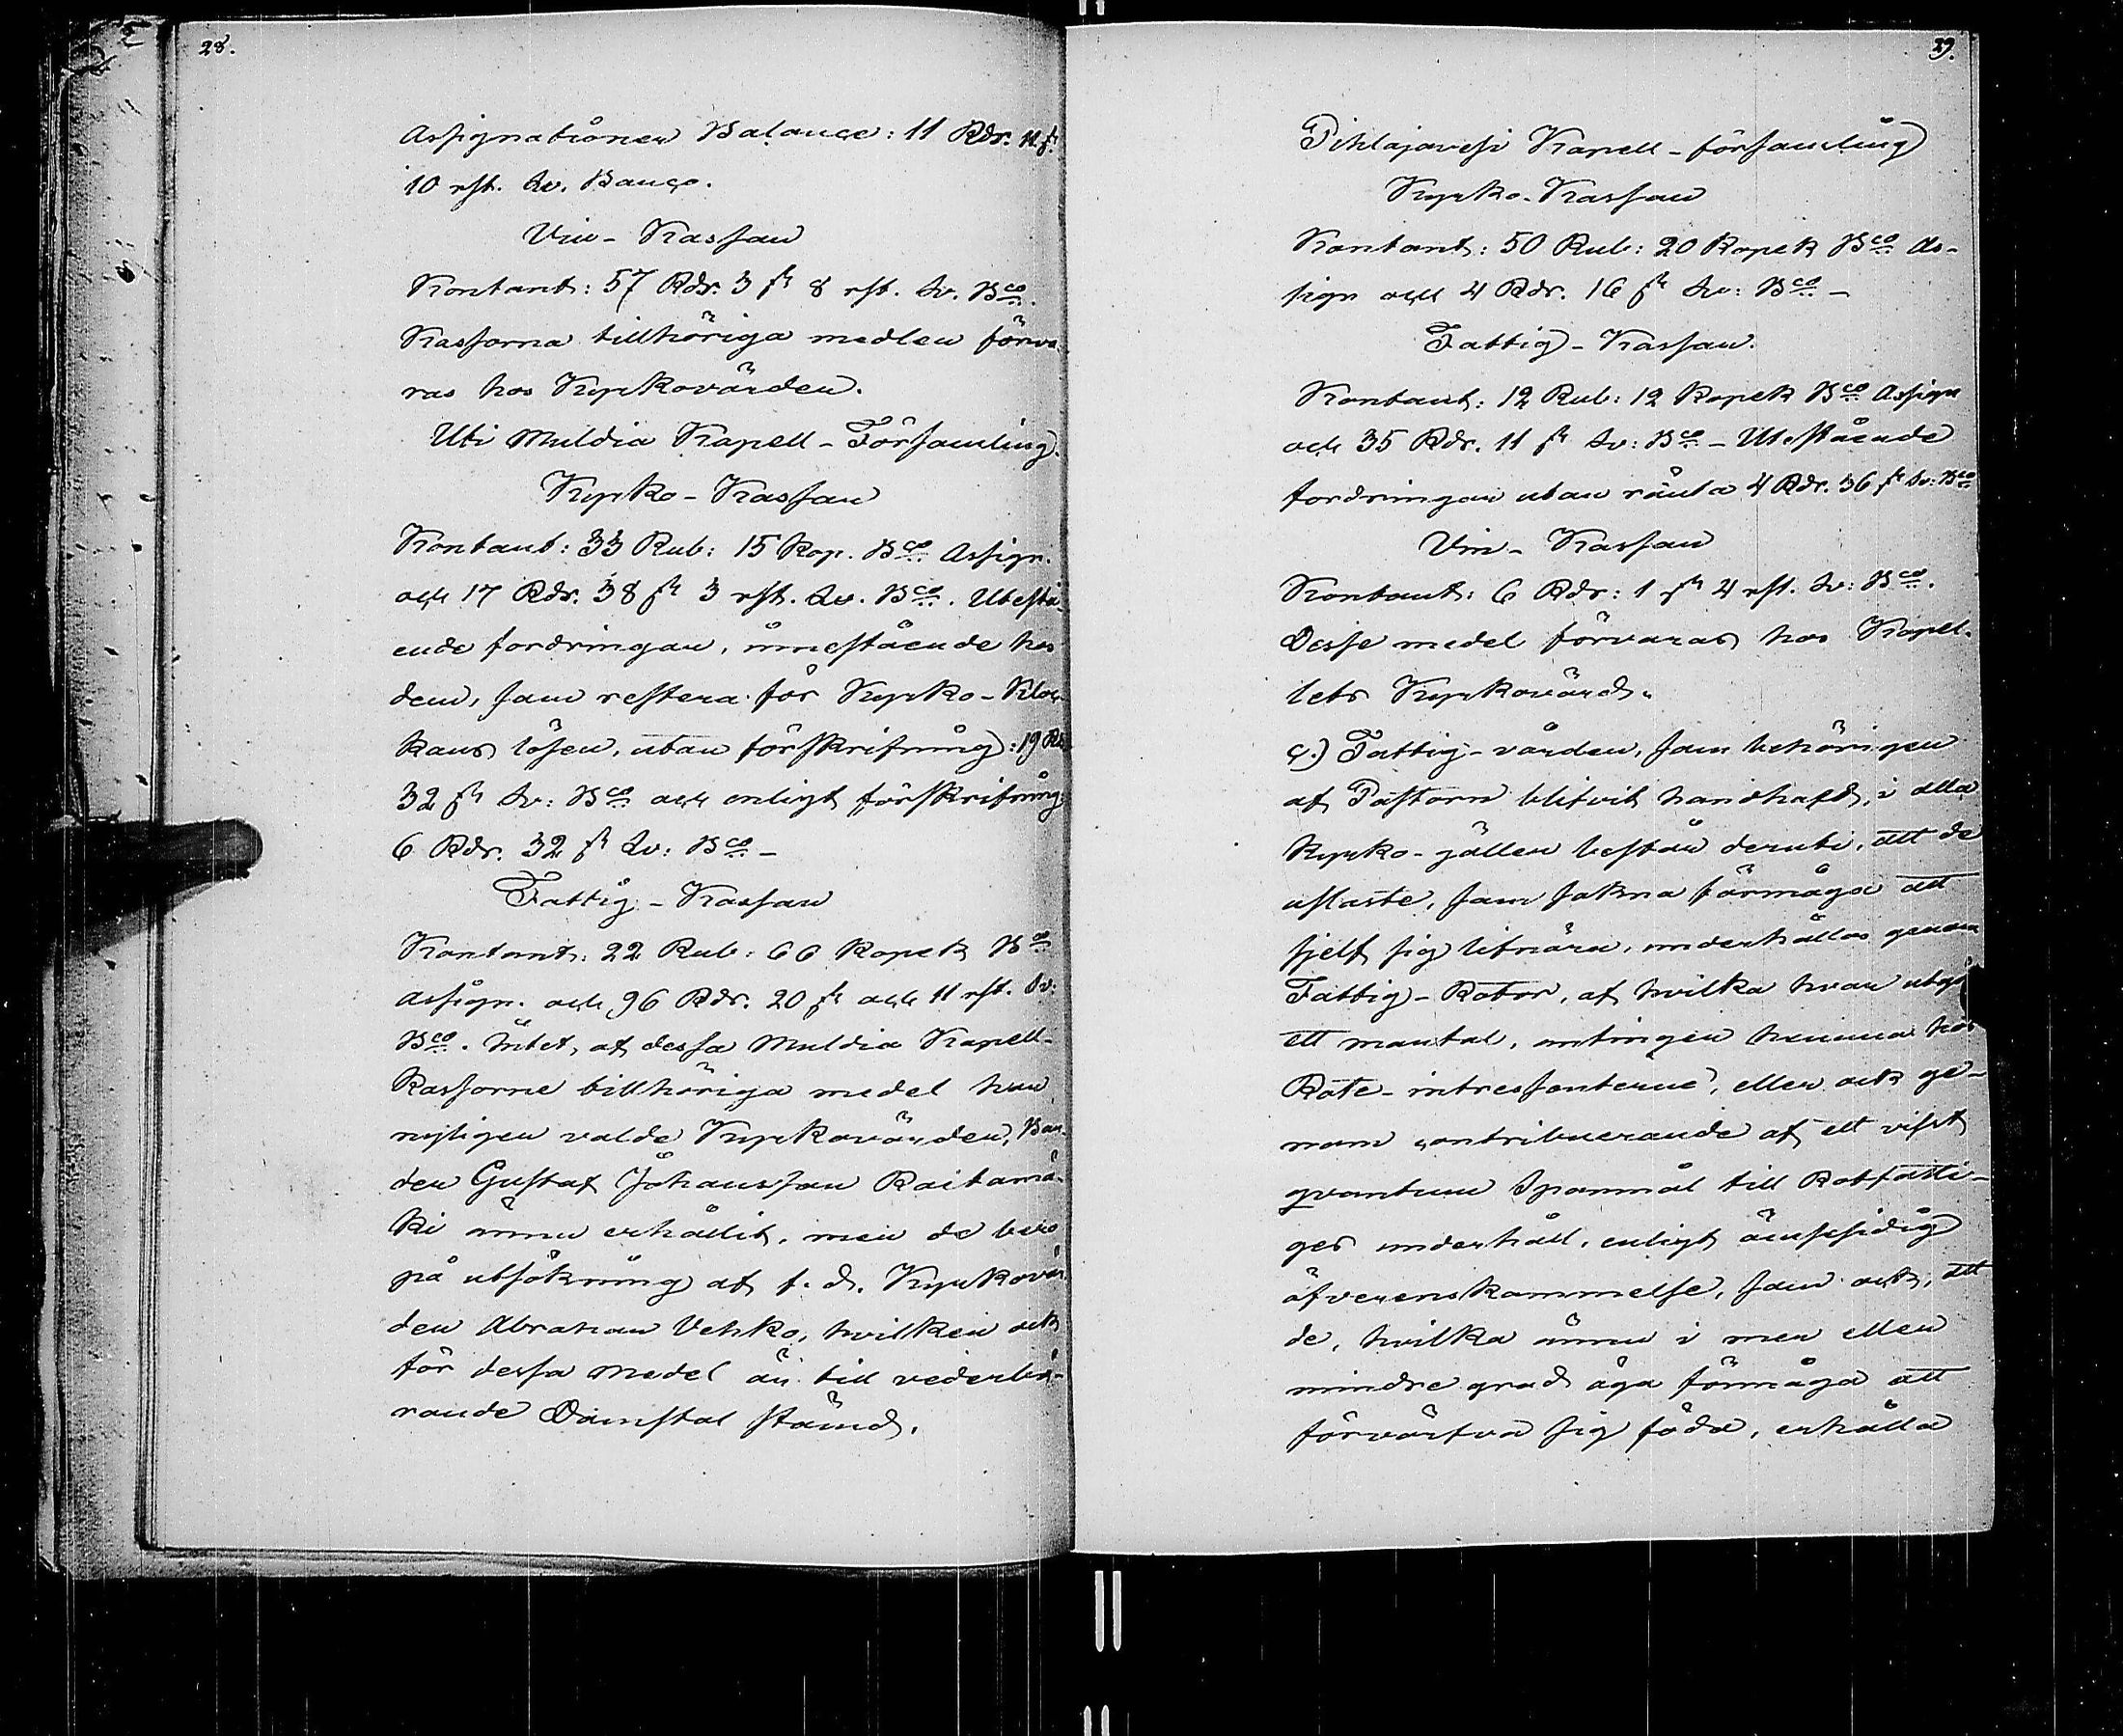 28.
Assignationer Balance: 11 Rdr. 11 sk
10 rst. Sv. Banco.
Vin-Kassan
Kontant: 57 Rdr. 3 sk 8 rst. Sv. Bco.
Kassorna tillhöriga medlen förva-
ras hos Kyrkovärden.
Uti Muldia Kapell-Församling.
Kyrko-Kassan
Kontant: 33 Rub: 15 Kop. Bco Assign.
och 17 Rdr. 38 sk 3 rst. Sv. Bco. Utestå-
ende fordringar, innestående hos
dem, som restera för Kyrko-Kloc-
kans lösen, utan förskrifning: 19 Rdr
32 sk Sv: Bco och enligt förskrifning:
6 Rdr. 32 sk Sv: Bco –
Fattig-Kassan
Kontant: 22 Rub: 66 Kopek Bco
Assign. och 96 Rdr. 20 sk och 11 rst. Sv:
Bco. Intet af dessa Muldia Kapell-
Kassorne tillhöriga medel har
nyligen valde Kyrkovärden, Bon-
den Gustaf Johansson Raitamä-
ki ännu erhållit, men de bero
på utsökning af f. d. Kyrkovär-
den Abraham Vehko, hvilken ock
för dessa medel är till vederbö-
rande Domstol stämd.
29.
Pihlajavesi Kapell-församling
Kyrko-Kassan
Kontant: 50 Rub: 20 Kopek Bco As-
sign och 4 Rdr. 16 sk Sv: Bco –
Fattig-Kassan.
Kontant: 12 Rub: 12 Kopek Bco Assign
och 35 Rdr. 11 sk Sv: Bco – Utestående
fordringar utan ränta 4 Rdr. 36 sk Sv: Bco
Vin-Kassan
Kontant: 6 Rdr: 1 sk 4 rst. Sv: Bco.
Desse medel förvaras hos Kapel-
lets Kyrkovärd.
c.) Fattig-vården, som behörigen
af Pastorn blifvit handhafd, i alla
Kyrko-gällen består deruti, att de
uslaste, som sakna förmåga att
sjelf sig lifnära, underhållas genom
Fattig-Rotor, af hvilka hvar utgör
ett mantal, antingen hemma hos
Rote-intressenterne, eller ock ge-
nom contribuerande af ett visst
qvantum Spanmål till Rotfatti-
ges underhåll, enligt ömsesidig
öfverenskommelse, som ock, att
de, hvilka ännu i mer eller
mindre grad äga förmåga att
förvärfva sig föda, erhålla